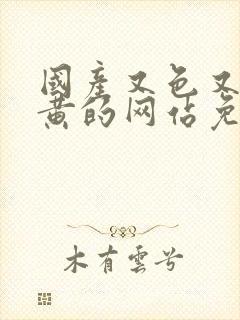 國產又色又
黄的网佔免
木有雲兮